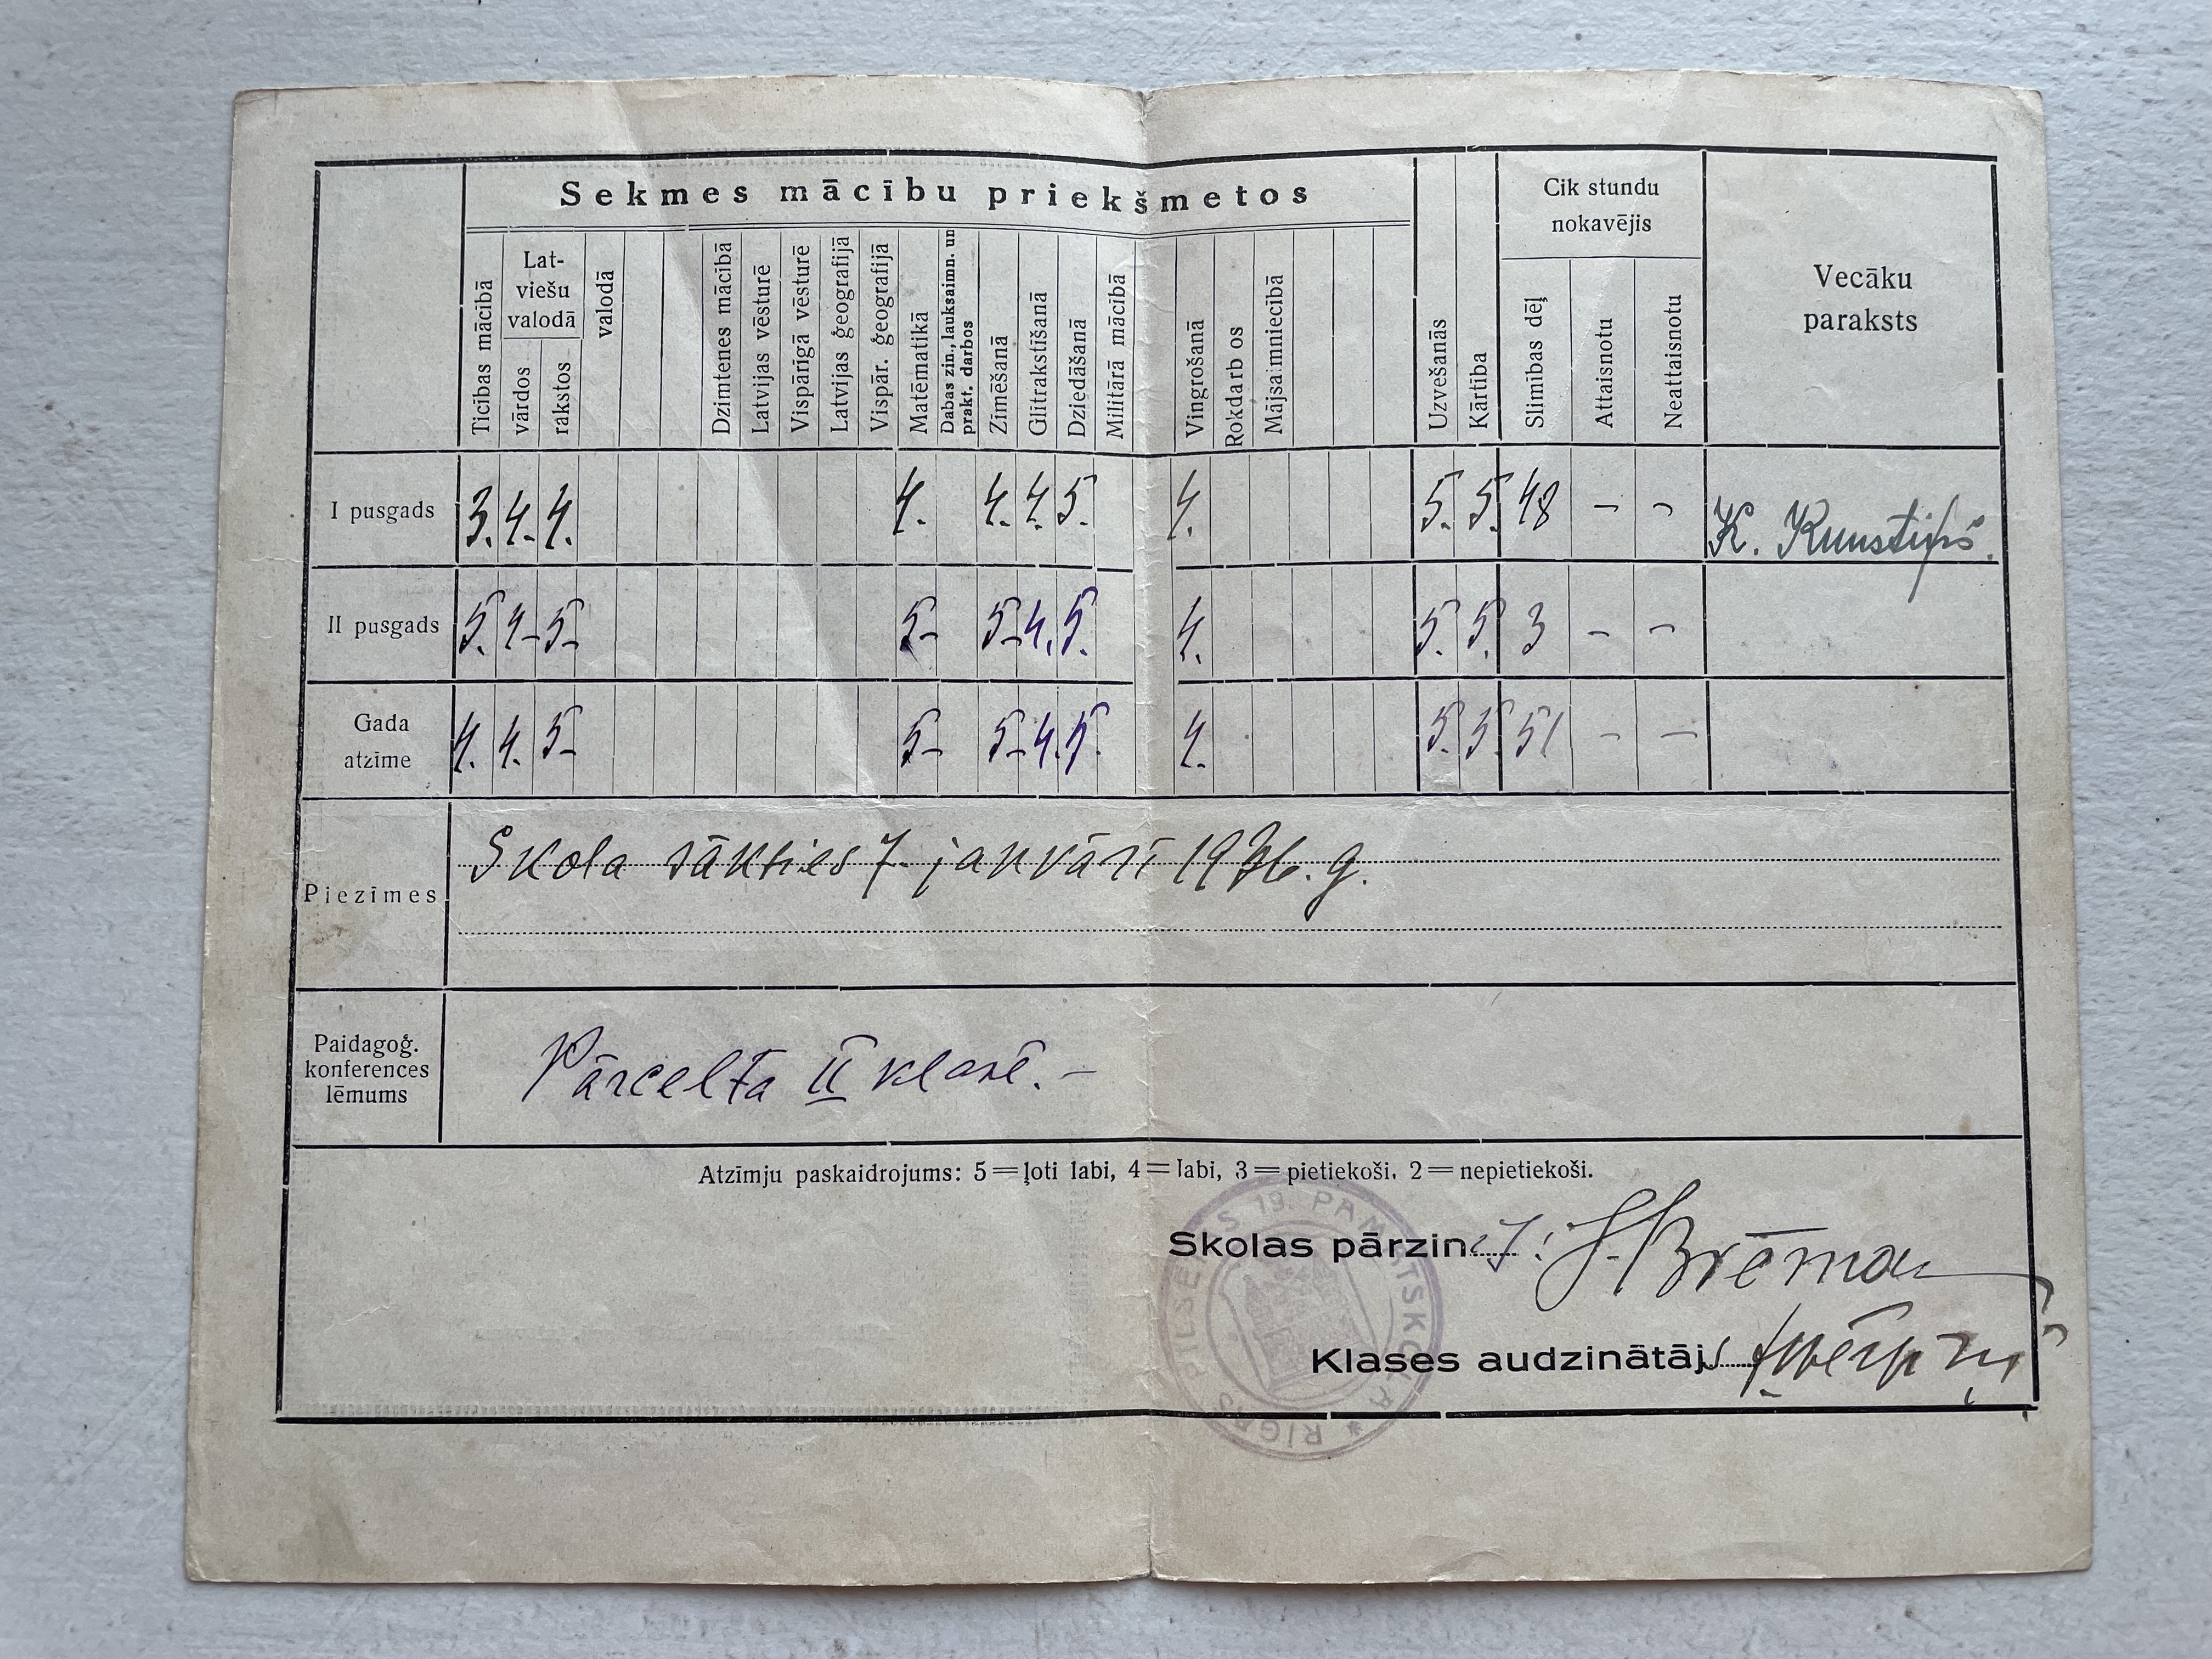 Sekmes mācību priekšmetos
Cik stundu
nokavējis
Vecāku
paraksts
Ticības mācībā
Lat-
viešu
valodā
vārdos
rakstos
valodā
Dzimtenes mācībā
Latvijas vēsturē
Vispārīgā vēsturē
Latvijas ģeografijā
Vispār. ģeografijā
Matēmatikā
Dabas zin., lauksaimn. un
prakt. darbos
Zīmēšanā
Glītrakstīšanā
Dziedāšanā
Militārā mācībā
Vingrošanā
Rokdarbos
Mājsaimniecībā
Uzvešanās
Kārtība
Slimības dēļ
Attaisnotu
Neattaisnotu
I pusgads 3. 4. 4. 4. 4. 4. 5. 4. 5. 5. 48 – – K. Kunstiņš.
II pusgads 5. 4- 5- 5- 5- 4. 5. 4. 5. 5. 3 – –
Gada
atzīme
4. 4. 5- 5- 5- 4. 5. 4. 5. 5. 51 – –
Piezīmes
Skola sākties 7. janvārī 1936. g.
Paidagoģ.
konferences
lēmums
Pārcelta II klasē. –
Atzīmju paskaidrojums: 5 = ļoti labi, 4 = labi, 3 = pietiekoši, 2 = nepietiekoši.
Skolas pārzin
Klases audzinātāj
RĪGAS PILSĒTAS 19. PAMATSKOLA *